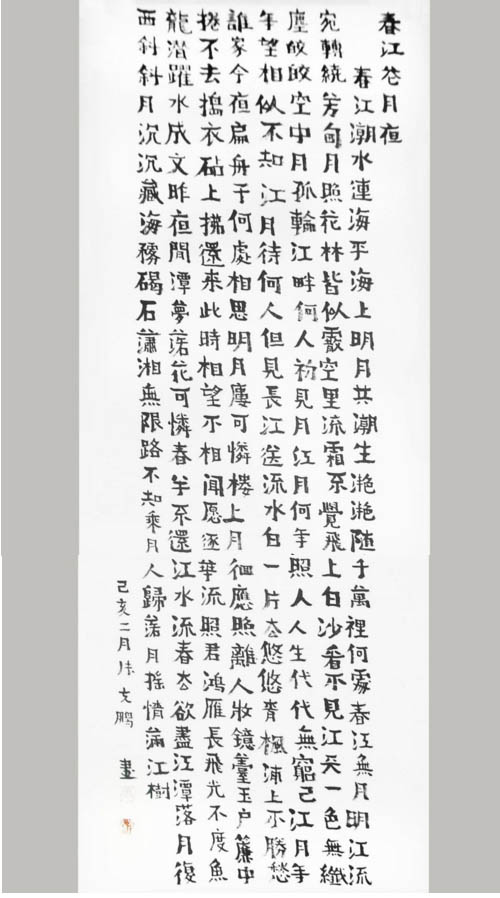 春江花月夜
春江潮水連海平海上明月共潮生滟滟随千萬裡何處春江無月明江流
宛轉繞芳甸月照花林皆似霰空里流霜不覺飛上白沙看不見江天一色無纖
塵皎皎空中月孤輪江畔何人初見月江月何年照人人生代代無窮己江月年
年望相似不知江月待何人但見長江送流水白一片去悠悠青楓浦上不勝愁
誰家今夜扁舟子何處相思明月廔可憐楼上月徊應照離人妝鏡臺玉户簾中
捲不去搗衣砧上拂還来此時相望不相闻愿逐華流照君鴻雁長飛光不度魚
龍潛躍水成文昨夜閒潭夢落花可憐春半不還江水流春去欲盡江潭落月復
西斜斜月沉沉藏海霧碣石瀟湘無限路不知乘月人歸落月摇情滿江樹
己亥二月朱文鹏 畫